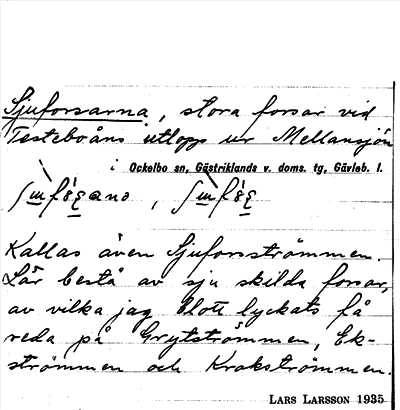 Sjuforsarna, stora forsar vid
Testeboåns utlopp ur Mellansjön
i Ockelbo sn, Gästriklands v. doms. tg, Gävleb. l.
Kallas även Sjuforsströmmen.
Lär bestå av sju skilda forsar,
av vilka jag blott lyckats få
reda på Grytströmmen, Ek-
strömmen och Krokströmmen.
LARS LARSSON 1935